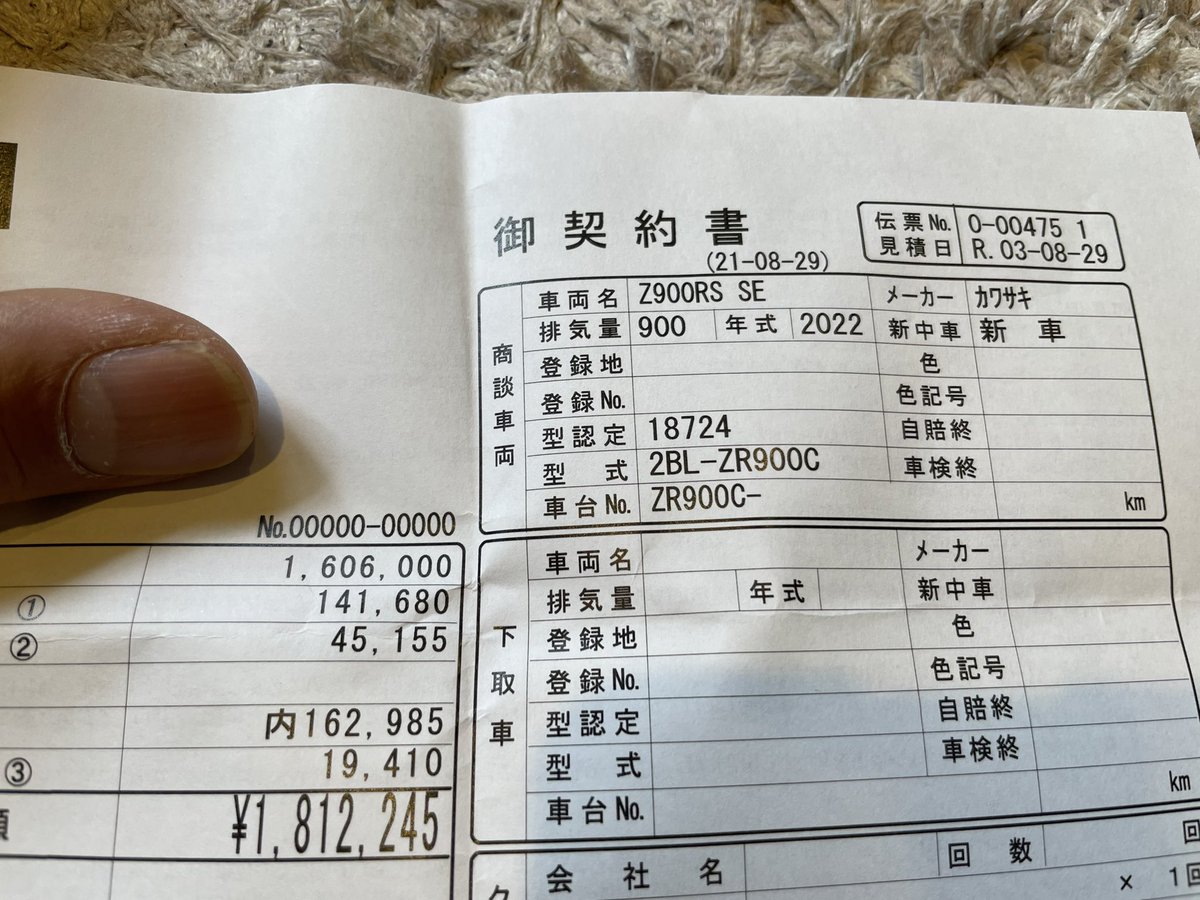 御契約書
(21-08-29)
伝票No. 0-00475 1
見積日 R. 03-08-29
商談車両
車両名 Z900RS SE メーカー カワサキ
排気量 900 年式 2022 新中車 新車
登録地 色
登録No. 色記号
型認定 18724 自賠終
型式 2BL-ZR900C 車検終
車台No. ZR900C- km
No.00000-00000
1,606,000
① 141,680
② 45,155
内162,985
③ 19,410
額 ¥1,812,245
下取車
車両名 メーカー
排気量 年式 新中車
登録地 色
登録No. 色記号
型認定 自賠終
型式 車検終
車台No. km
ク 会社名 回数 回
× 1回